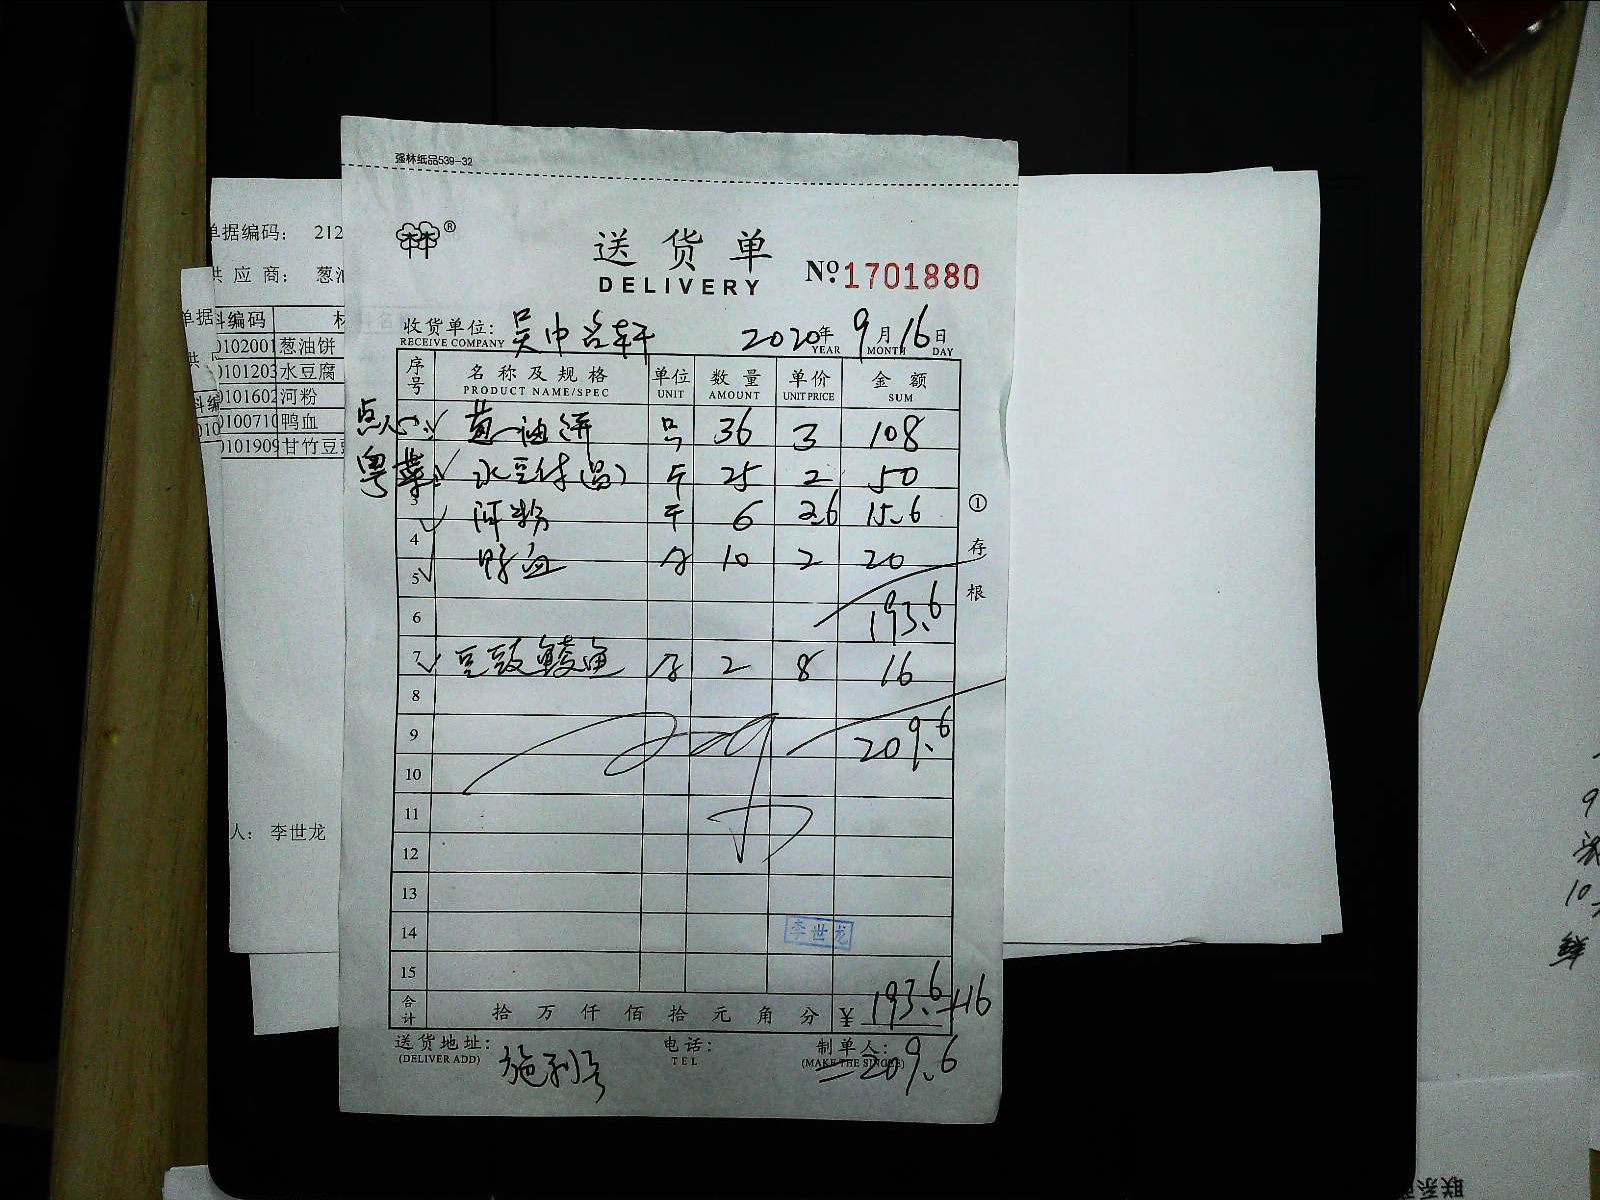 强林纸品539-32
林®
送货单
DELIVERY
№ 1701880
收货单位: 吴中名轩 2020年 9月 16日
RECEIVE COMPANY YEAR MONTH DAY
序号 名称及规格 单位 数量 单价 金额
PRODUCT NAME/SPEC UNIT AMOUNT UNIT PRICE SUM
点心 葱油饼 36 3 108
粤菜 水豆付 斤 25 2 50
3 河粉 斤 6 2.6 15.6
4 鸭血 10 2 20
5
6 193.6
7 豆豉鲮鱼 2 8 16
8
9 209.6
10
11
12
13
14 李世龙
15
合计 拾 万 仟 佰 拾 元 角 分 ¥ 193.6+16
送货地址: 电话: 制单人: =209.6
(DELIVER ADD) TEL (MAKE THE SINGLE)
①存根
单据编码: 212
供应商: 葱油
料编码 材
0102001 葱油饼
0101203 水豆腐
0101602 河粉
010071 鸭血
0101909 甘竹豆豉
人: 李世龙
单据
供
料编
010
9
10
联系